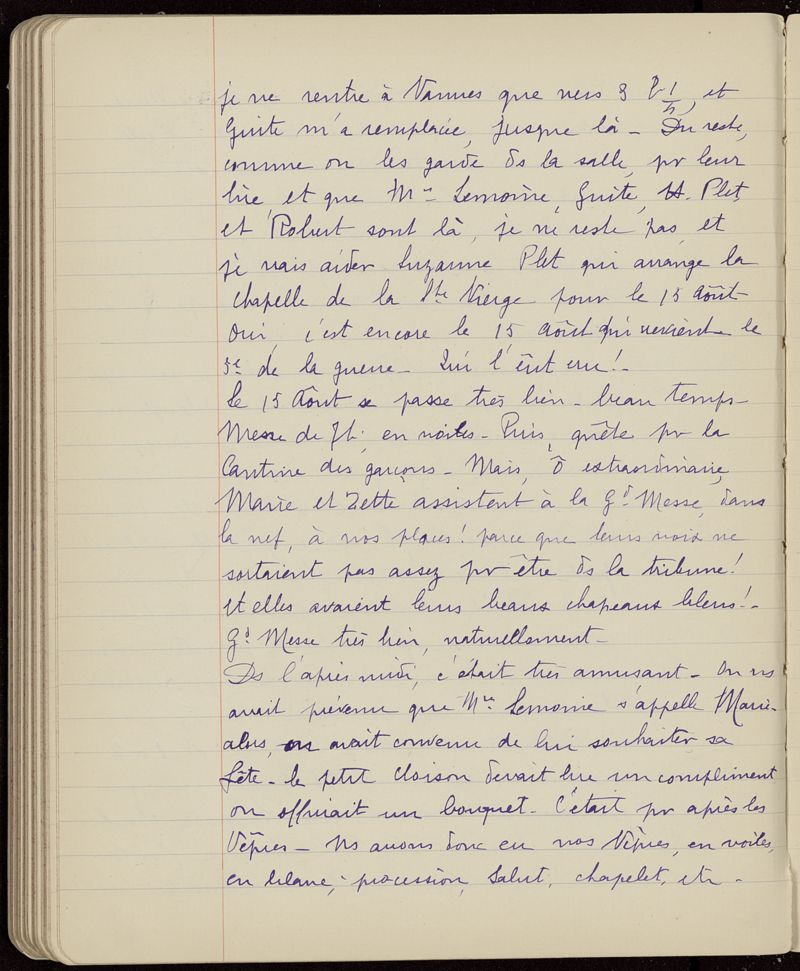 je ne rentre à Vannes que vers 3 h 1/2, et
Guite m'a remplacée, jusque là - Du reste,
comme on les garde ds la salle, pr leur
lire, et que Mme Lemoine, Guite, H. Plet,
et Robert sont là, je ne reste pas, et
je vais aider Suzanne Plet qui arrange la
chapelle de la Ste Vierge pour le 15 Août
Oui, c'est encore le 15 Août qui revient - le
3e de la guerre - Qui l'eût cru ! -
Le 15 Août se passe très bien - beau temps -
Messe de 7h. en voiles - Puis, quête pr la
Cantine des garçons - Mais, Ô extraordinaire,
Marie et Zette assistent à la Gd Messe, dans
la nef, à nos places ! parce que leurs voix ne
sortaient pas assez pr être ds la tribune !
Et elles avaient leurs beaux chapeaux bleus ! -
Gd Messe très bien, naturellement -
Ds l'après midi, c'était très amusant - On ns
avait prévenu que Mme Lemoine s'appelle Marie -
alors, on avait convenu de lui souhaiter sa
fête - le petit Cloison devait lire un compliment
on offrirait un bouquet - C'était pr après les
Vêpres - Ns avons donc eu nos Vêpres, en voiles,
en blanc, - procession, Salut, chapelet, etc -